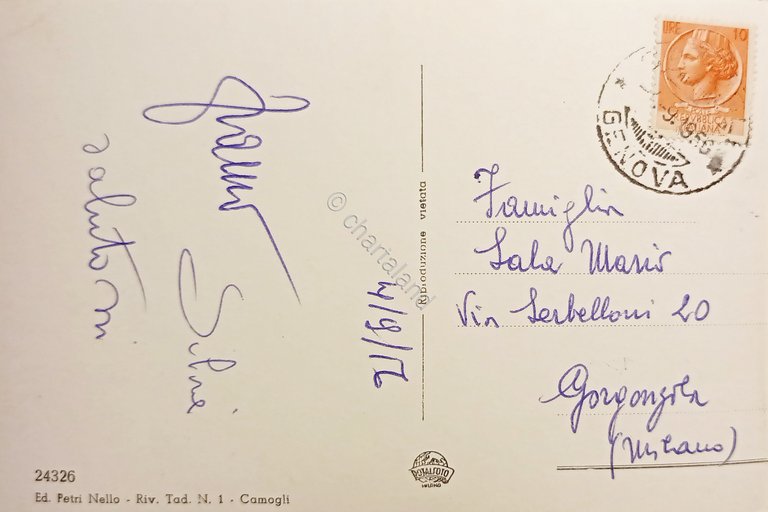 saluto
Silvi
Riproduzione vietata
© chartaland
LIRE 10
GENOVA
Famiglia
Sala Mario
Via Serbelloni 20
Gorgonzola
(Milano)
24326
Ed. Petri Nello - Riv. Tad. N. 1 - Camogli
ROTALFOTO
MILANO